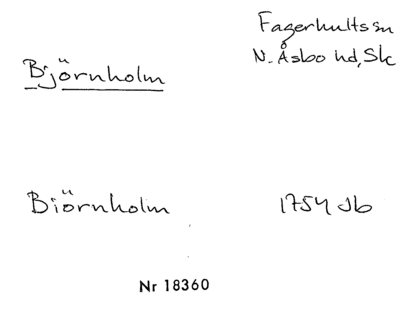 Fagerhults sn
N. Åsbo hd, Sk
Björnholm
Biörnholm 1754 Jb
Nr 18360